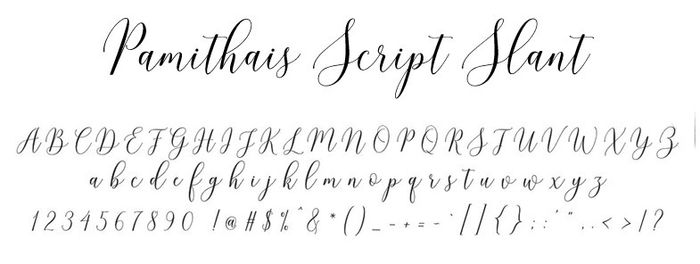 Pamithais Script Slant
A B C D E F G H I J K L M N O P Q R S T U V W X Y Z
a b c d e f g h i j k l m n o p q r s t u v w x y z
1 2 3 4 5 6 7 8 9 0 ! @ # $ % ^ & * ( ) _ - + = ~ ` [ ] / { } ; : ' " , . < > / ?